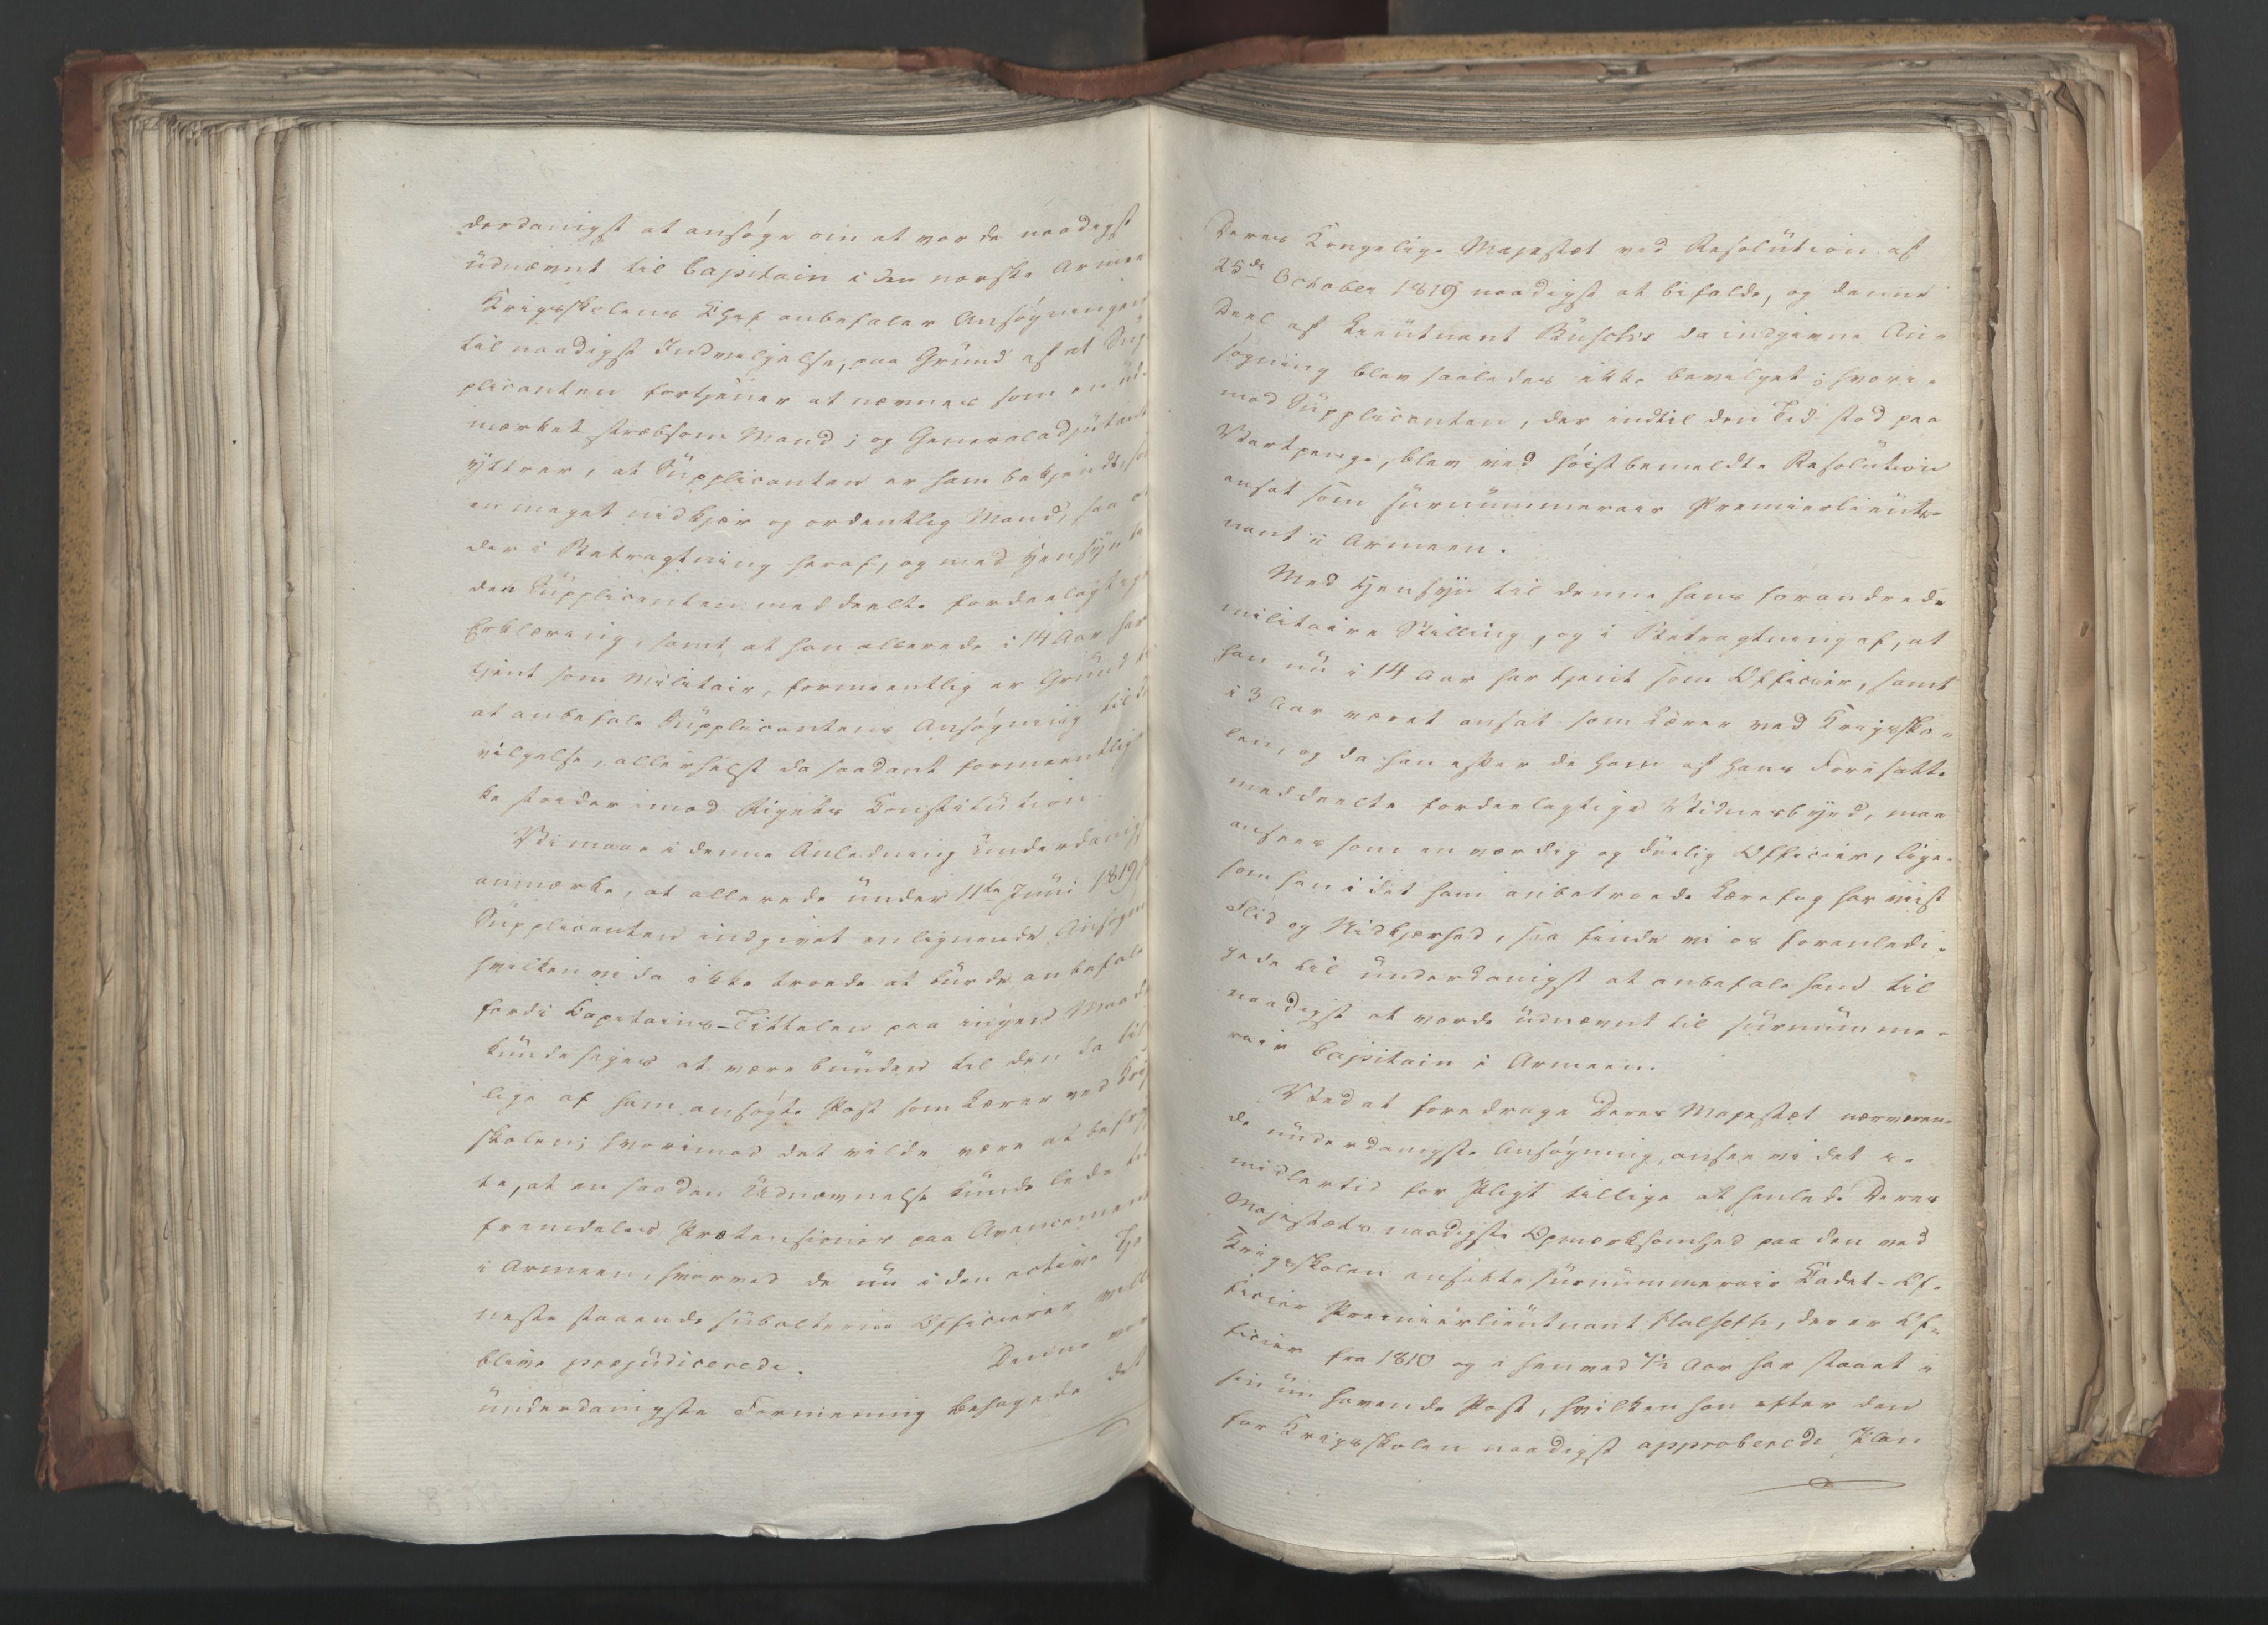 derdanigst at ansøge om at vorde naadigst
udnævnt til Capitain i den norske Armee
Krigsskolens Chef anbefaler Ansøgningen
til naadigst Indvilgelse, paa Grund af at Sup
plicanten fortjener at nævnes som en ud
mærket stræbsom Mand; og Generaladjutant
yttrer, at Supplicanten er ham bekjendt, so
en meget nidkjær og ordentlig Mand, saa
der i Betragtning heraf, og med Hensyn
den Supplicanten meddeelte fordeelagtige
Erklæring, samt at han allerede i 14 Aar har
tjent som Militair, formeentlig er Grund
at anbefale Supplicantens Ansøgning til
vilgelse, allerhelst da saadant formeentlig
ke strider imod Rigets Constitution.
Vi maae i denne Anledning underdanig
anmærke, at allerede under 11te Juni 1819
Supplicanten indgivet en lignende Ansøgn
hvilken vi da ikke troede at burde anbefale
fordi Capitains-Tittelen paa ingen Maade
kunde siges at være bunden til den da til
lige af ham ansøgte Post som Lærer ved Krig
skolen; hvorimod det vilde være at befryg
te, at en saadan Udnævnelse kunde lede til
fremdeles Prætensioner paa Avancement
i Armeen, hvorved de nu i den active Tje
neste staaende subalterne Officierer vilde
blive præjudicerede. Denne vor
underdanigste Formening behagede det
Deres Kongelige Majestæt ved Resolution af
25de October 1819 naadigst at bifalde, og denne
Deel af Lieutnant Büschs da indgivne An-
søgning blev saaledes ikke bevilget; hvori-
mod Supplicanten, der indtil den Tid stod paa
Vartpenge, blev ved høistbemeldte Resolution
ansat som surnummerair Premierlieut-
nant i Armeen.
Med Hensyn til denne hans forandrede
militaire Stilling, og i Betragtning af, at
han nu i 14 Aar har tjent som Officier, samt
i 3 Aar været ansat som Lærer ved Krigssko-
len, og da han efter de ham af hans Foresatte
meddeelte fordeelagtige Vidnesbyrd, maa
ansees som en værdig og duelig Officier, lige-
som han i det ham anbetroede Lærefag har viist
Flid og Nidkjærhed, saa finde vi os foranledi-
gede til underdanigst at anbefale ham til
naadigst at vorde udnævnt til surnumme-
rair Capitain i Armeen.
Ved at foredrage Deres Majestæt nærværen-
de underdanigste Ansøgning, ansee vi det i-
midlertid for Pligt tillige at henlede Deres
Majestæts naadigste Opmærksomhed paa den ved
Krigsskolen ansatte surnummerair Cadet-Of-
ficier Premierlieutnant Halseth, der er Of-
ficier fra 1810 og i henved Aar har staaet i
sin nu havende Post, hvilken han efter den
for Krigsskolen naadigst approberede Plan